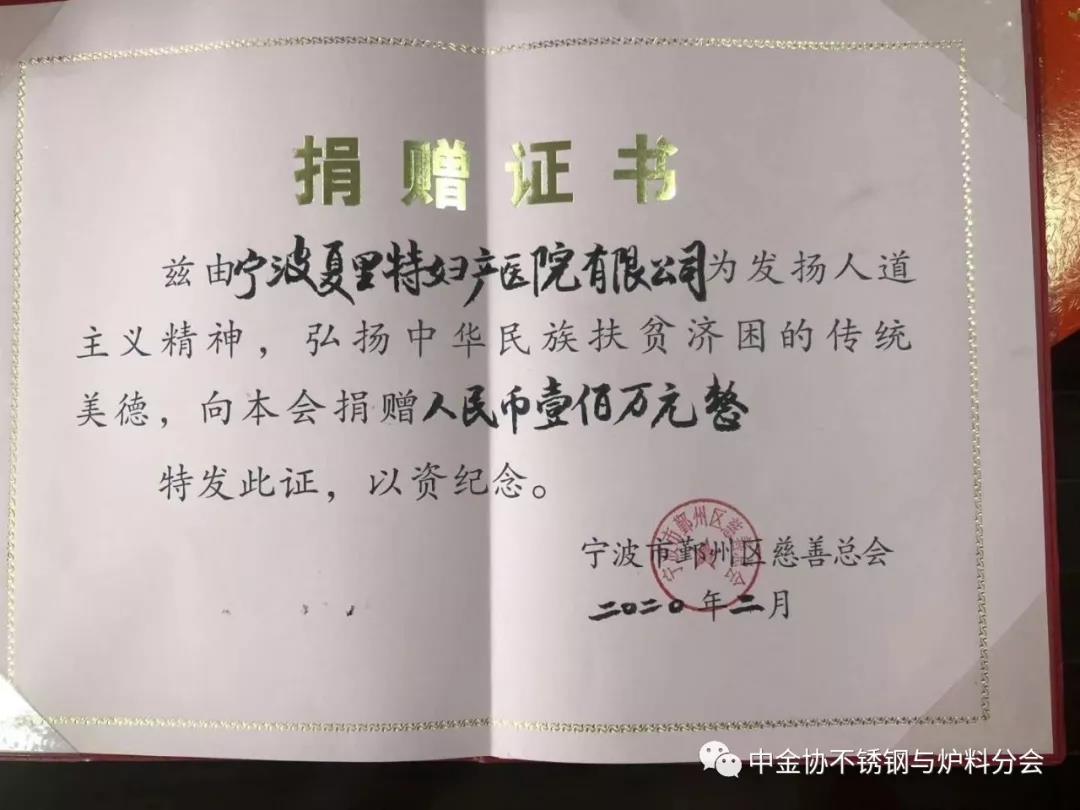 捐赠证书
兹由宁波夏里特妇产医院有限公司为发扬人道
主义精神，弘扬中华民族扶贫济困的传统
美德，向本会捐赠人民币壹佰万元整
特发此证，以资纪念。
宁波市鄞州区慈善总会
宁波市鄞州区慈善总会
二〇二〇年二月
中金协不锈钢与炉料分会